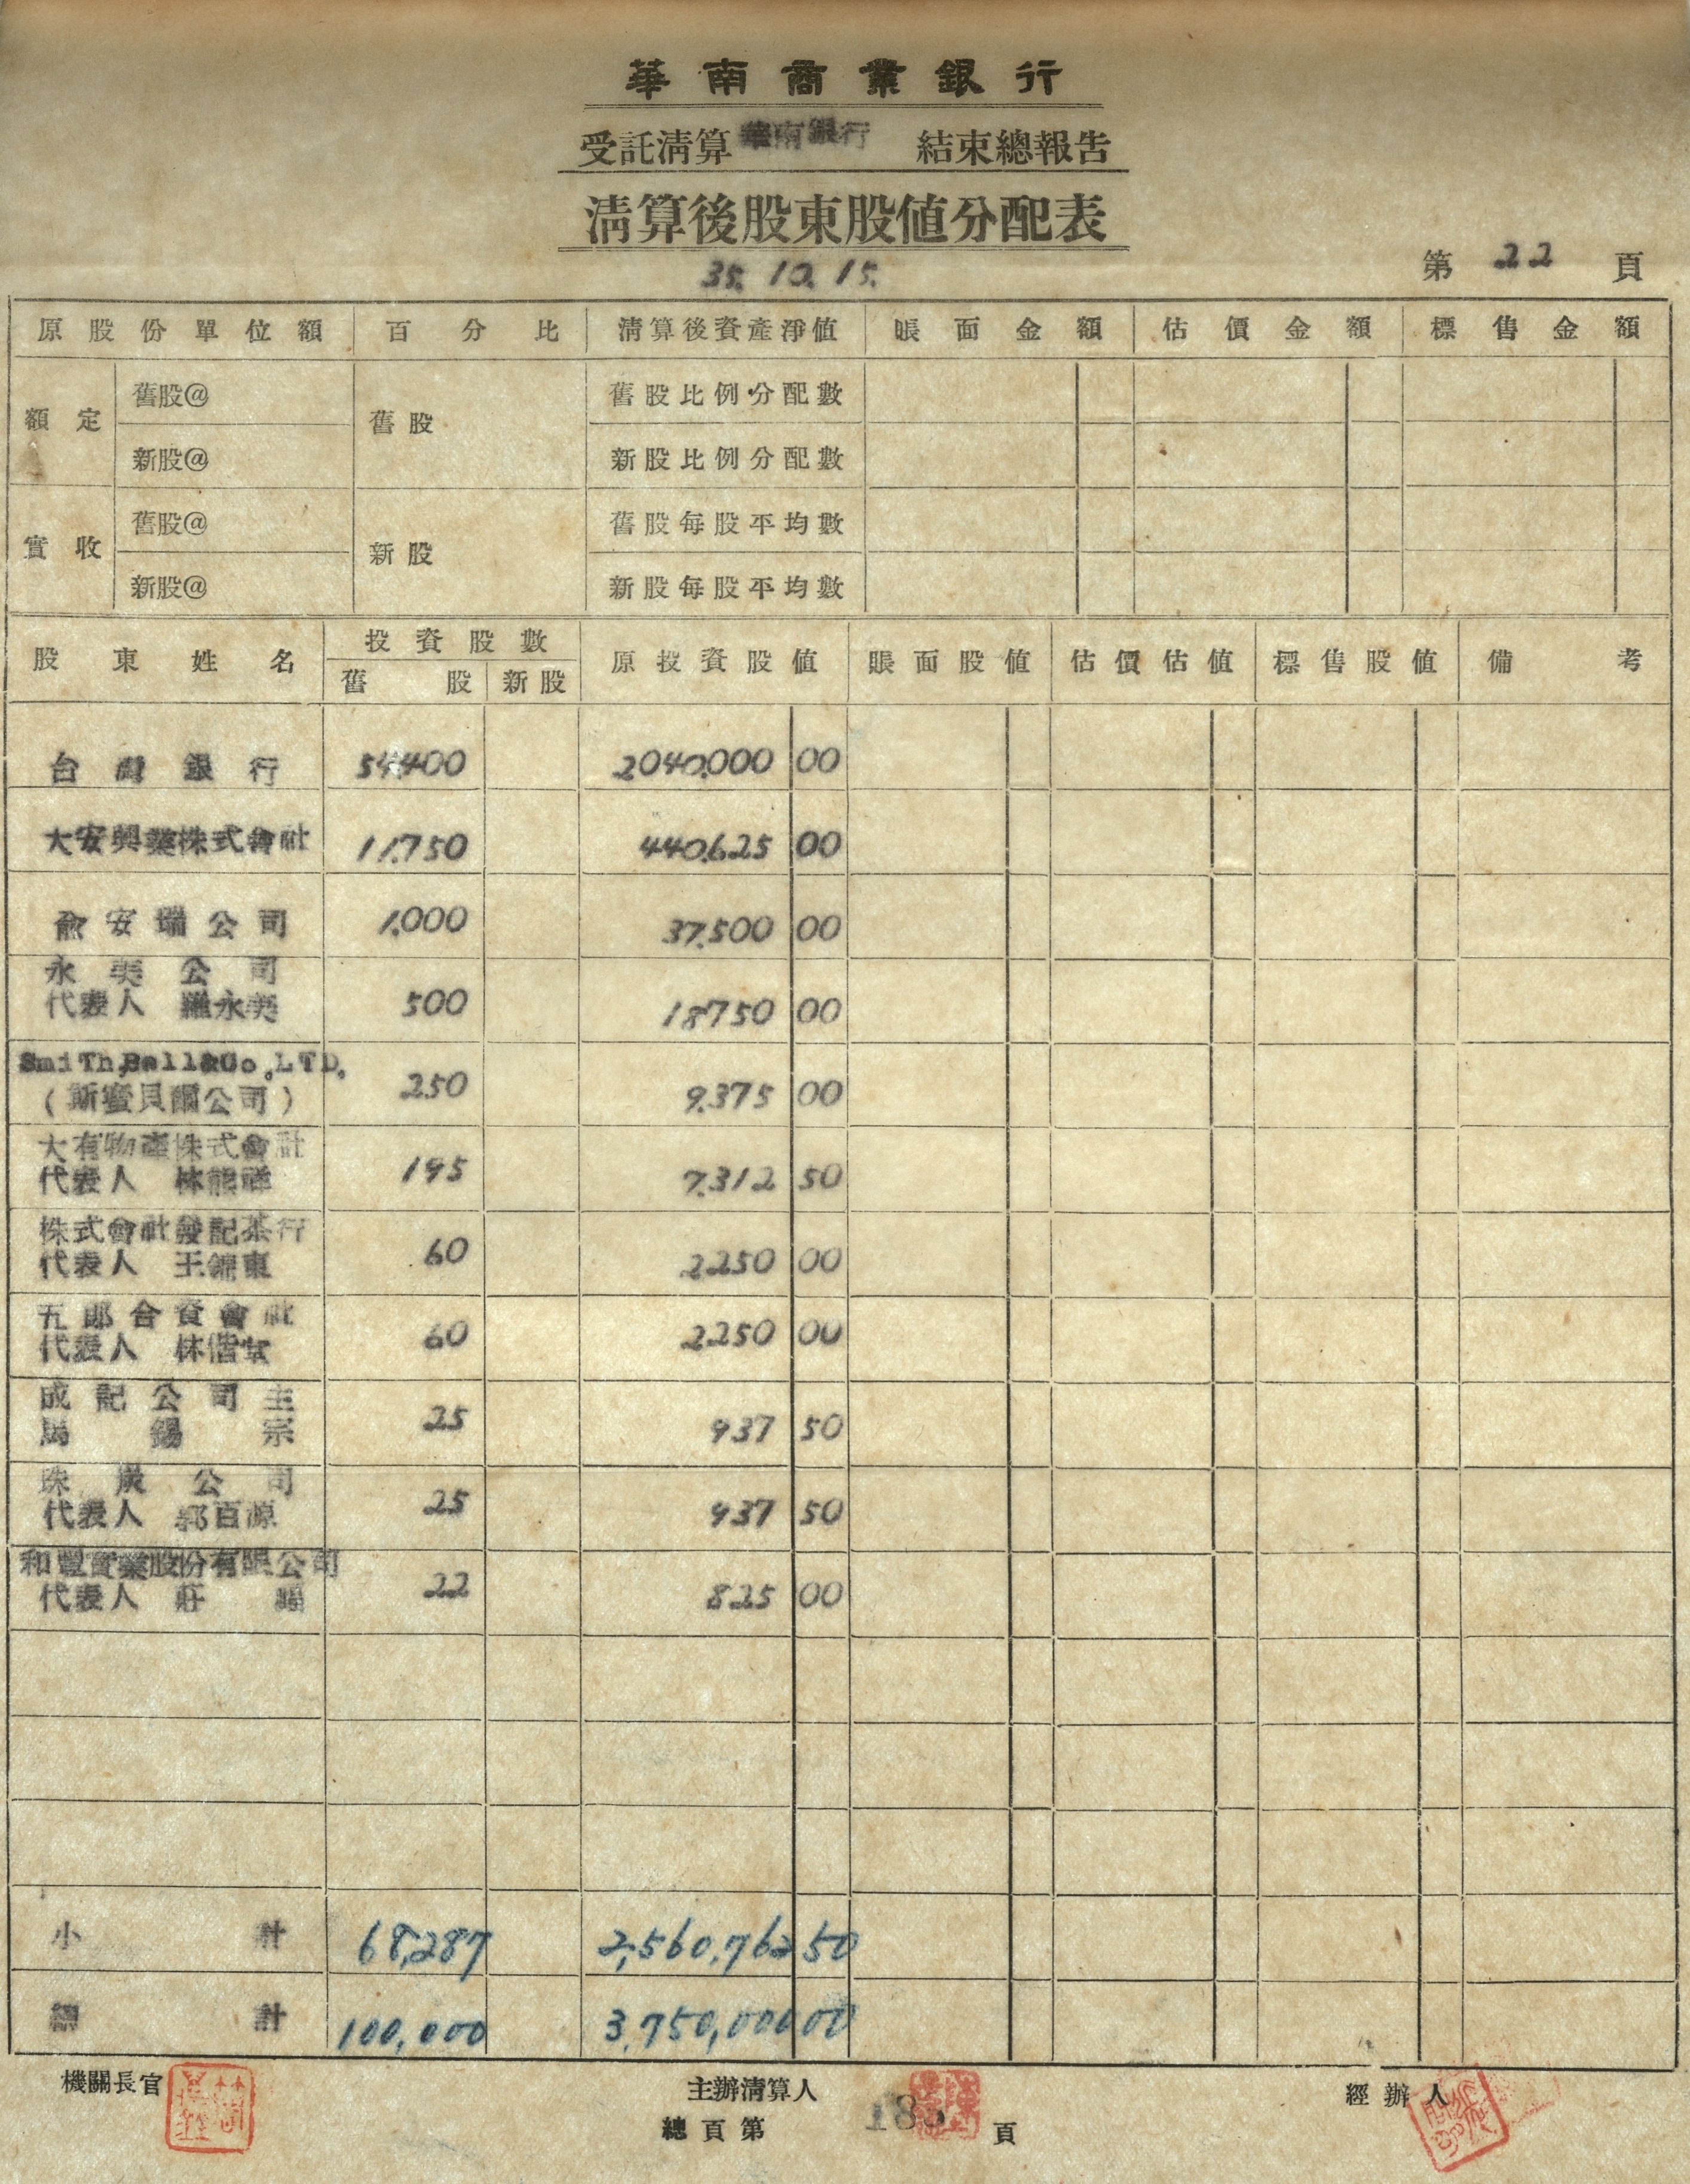 華南商業銀行
受託清算 華南銀行 結束總報告
清算後股東股值分配表
35. 10. 15.
第 22 頁
原股份單位額 百分比 清算後資產淨值 賬面金額 估價金額 標售金額
額定 舊股@ 舊股 舊股比例分配數
新股@ 新股比例分配數
實收 舊股@ 新股 舊股每股平均數
新股@ 新股每股平均數
股東姓名 投資股數 原投資股值 賬面股值 估價估值 標售股值 備考
舊股 新股
台灣銀行 54,400 2,040,000 00
大安興業株式會社 11,750 440,625 00
俞安瑞公司 1,000 37,500 00
永奕公司
代表人 羅永奕 500 18750 00
SmiTh,Bell&Co.LTD.
(斯蜜貝爾公司) 250 9,375 00
大有物產株式會社
代表人 林熊祥 195 7,312 50
株式會社發記茶行
代表人 王錦東 60 2,250 00
五郎合資會社
代表人 林偕 60 2,250 00
成記公司主
馬錫宗 25 937 50
珠廣公司
代表人 郭百源 25 937 50
和豐實業股份有限公司
代表人 莊 22 825 00
小計 68,287 2,560,762 50
總計 100,000 3,750,000 00
機關長官 主辦清算人 經辦人
總頁第 185 頁